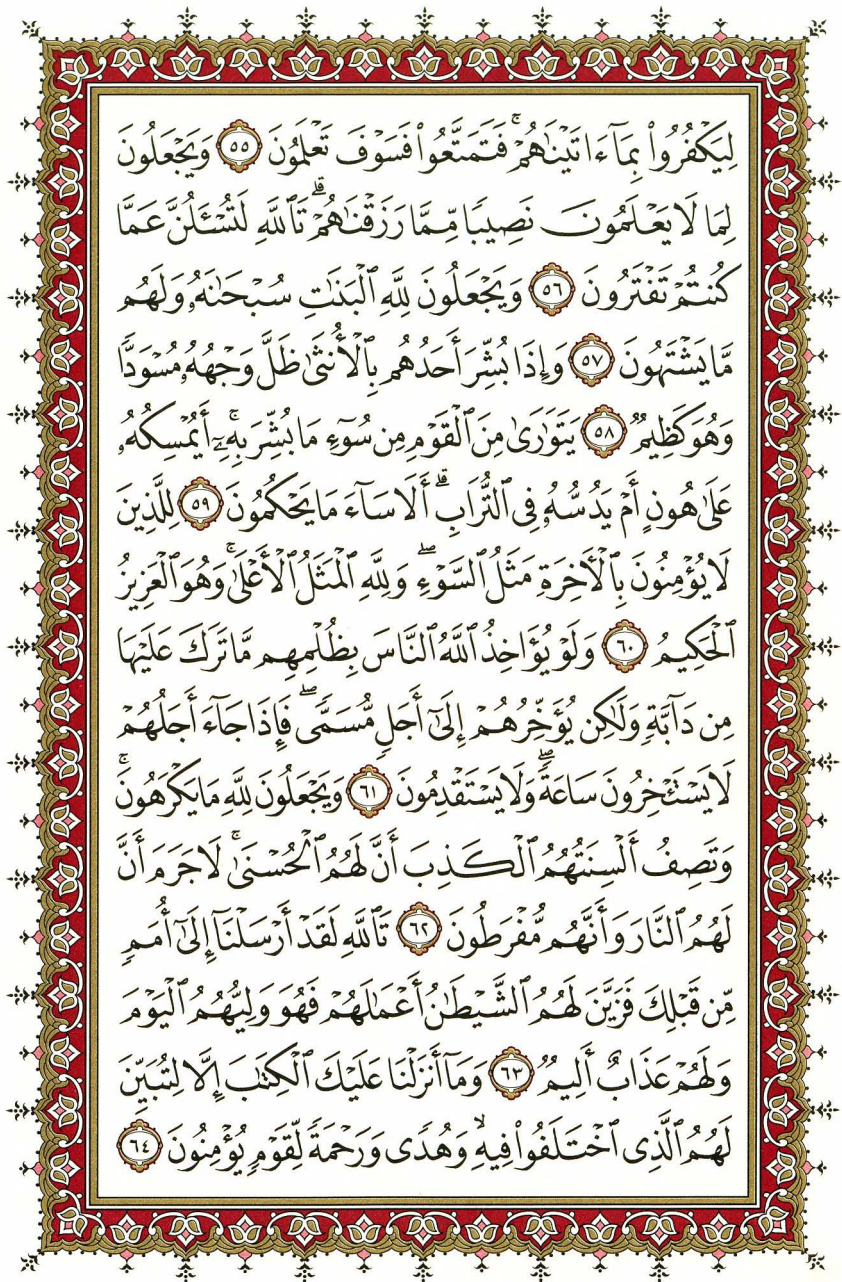 لِيَكْفُرُوا۟ بِمَآ ءَاتَيْنَـٰهُمْ ۚ فَتَمَتَّعُوا۟ فَسَوْفَ تَعْلَمُونَ ٥٥ وَيَجْعَلُونَ
لِمَا لَا يَعْلَمُونَ نَصِيبًا مِّمَّا رَزَقْنَـٰهُمْ ۗ تَٱللَّهِ لَتُسْـَٔلُنَّ عَمَّا
كُنتُمْ تَفْتَرُونَ ٥٦ وَيَجْعَلُونَ لِلَّهِ ٱلْبَنَـٰتِ سُبْحَـٰنَهُۥ وَلَهُم
مَّا يَشْتَهُونَ ٥٧ وَإِذَا بُشِّرَ أَحَدُهُم بِٱلْأُنثَىٰ ظَلَّ وَجْهُهُۥ مُسْوَدًّا
وَهُوَ كَظِيمٌ ٥٨ يَتَوَٰرَىٰ مِنَ ٱلْقَوْمِ مِن سُوٓءِ مَا بُشِّرَ بِهِۦٓ ۚ أَيُمْسِكُهُۥ
عَلَىٰ هُونٍ أَمْ يَدُسُّهُۥ فِى ٱلتُّرَابِ ۗ أَلَا سَآءَ مَا يَحْكُمُونَ ٥٩ لِلَّذِينَ
لَا يُؤْمِنُونَ بِٱلْـَٔاخِرَةِ مَثَلُ ٱلسَّوْءِ ۖ وَلِلَّهِ ٱلْمَثَلُ ٱلْأَعْلَىٰ ۚ وَهُوَ ٱلْعَزِيزُ
ٱلْحَكِيمُ ٦٠ وَلَوْ يُؤَاخِذُ ٱللَّهُ ٱلنَّاسَ بِظُلْمِهِم مَّا تَرَكَ عَلَيْهَا
مِن دَآبَّةٍ وَلَـٰكِن يُؤَخِّرُهُمْ إِلَىٰٓ أَجَلٍ مُّسَمًّى ۖ فَإِذَا جَآءَ أَجَلُهُمْ
لَا يَسْتَـْٔخِرُونَ سَاعَةً ۖ وَلَا يَسْتَقْدِمُونَ ٦١ وَيَجْعَلُونَ لِلَّهِ مَا يَكْرَهُونَ ۚ
وَتَصِفُ أَلْسِنَتُهُمُ ٱلْكَذِبَ أَنَّ لَهُمُ ٱلْحُسْنَىٰ ۚ لَا جَرَمَ أَنَّ
لَهُمُ ٱلنَّارَ وَأَنَّهُم مُّفْرَطُونَ ٦٢ تَٱللَّهِ لَقَدْ أَرْسَلْنَآ إِلَىٰٓ أُمَمٍ
مِّن قَبْلِكَ فَزَيَّنَ لَهُمُ ٱلشَّيْطَـٰنُ أَعْمَـٰلَهُمْ فَهُوَ وَلِيُّهُمُ ٱلْيَوْمَ
وَلَهُمْ عَذَابٌ أَلِيمٌ ٦٣ وَمَآ أَنزَلْنَا عَلَيْكَ ٱلْكِتَـٰبَ إِلَّا لِتُبَيِّنَ
لَهُمُ ٱلَّذِى ٱخْتَلَفُوا۟ فِيهِ ۙ وَهُدًى وَرَحْمَةً لِّقَوْمٍ يُؤْمِنُونَ ٦٤